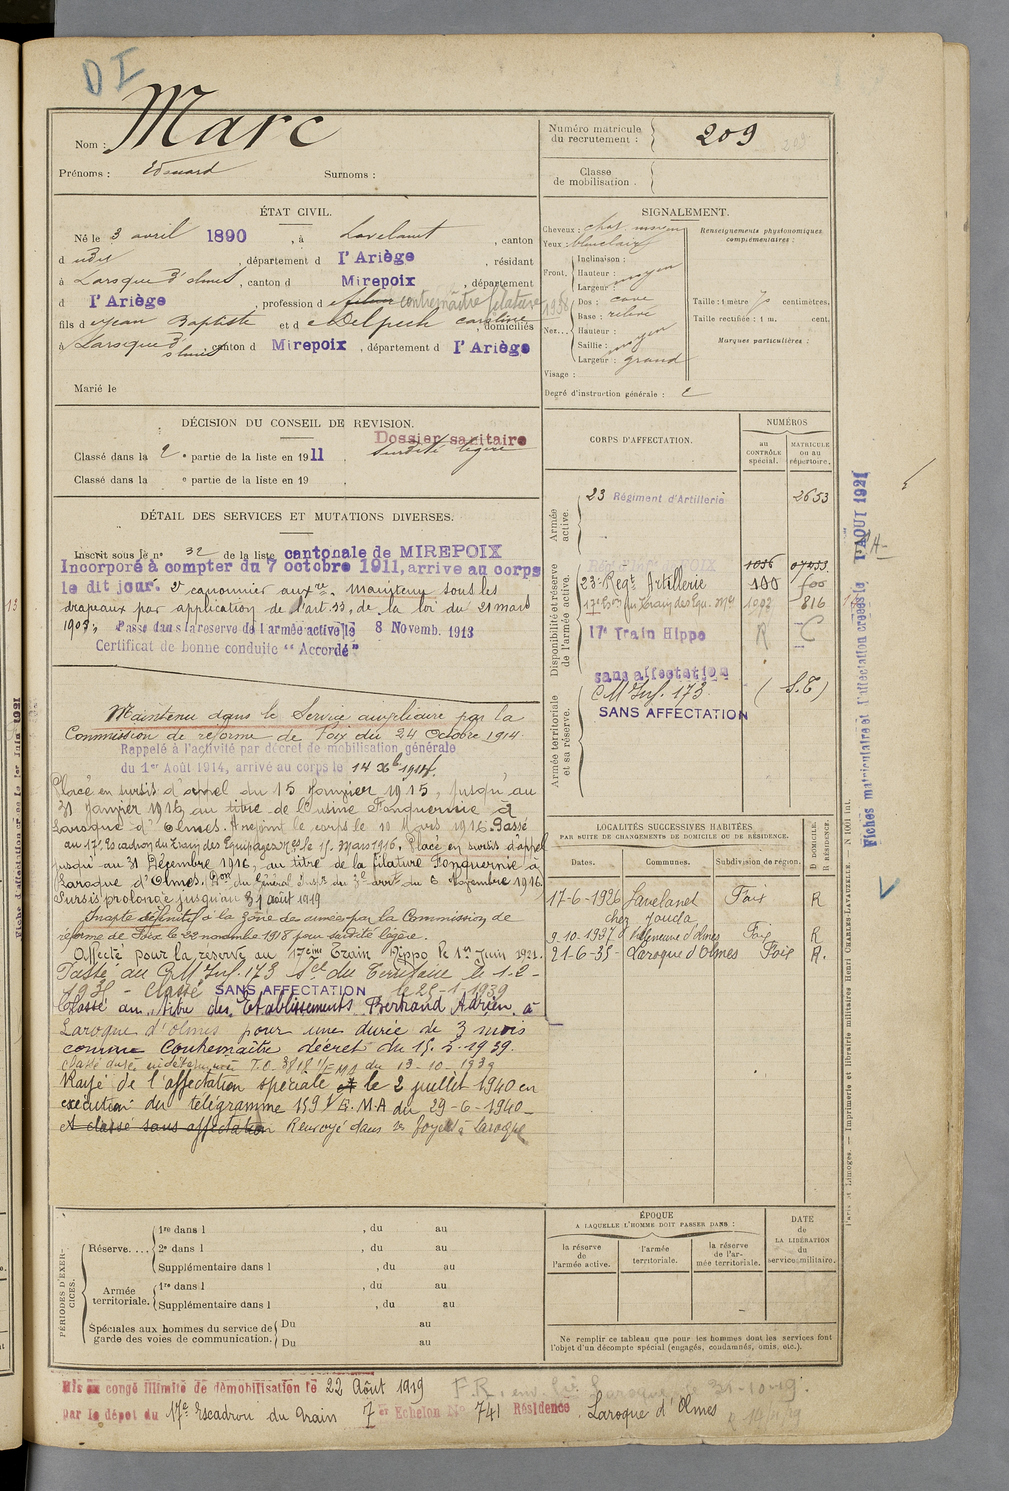 D I
Nom : Marc
Prénoms : Edouard Surnoms :
Numéro matricule du recrutement : 209
Classe de mobilisation .
ÉTAT CIVIL.
Né le 3 avril 1890 , à Lavelanet , canton
d udit , département d l'Ariège , résidant
à Laroque d'olmes , canton d Mirepoix , département
d l'Ariège , profession d fileur contremaître filature 1938
fils d e Jean Baptiste et d e Delpech Caroline , domiciliés
à Laroque d'olmes canton d Mirepoix , département d l'Ariège
Marié le
SIGNALEMENT.
Cheveux : chat. moyen
Yeux :
Front.
Inclinaison :
Hauteur : moyen
Largeur :
Nez...
Dos : cave
Base : relevé
Hauteur :
Saillie : moyen
Largeur : grand
Visage :
Renseignements physionomiques complémentaires :
Taille : 1 mètre 70 centimètres.
Taille rectifiée : 1 m. cent.
Marques particulières :
Degré d'instruction générale :
DÉCISION DU CONSEIL DE REVISION.
Dossier sanitaire
Classé dans la 2 e partie de la liste en 1911 . surdité légère
Classé dans la e partie de la liste en 19 .
DÉTAIL DES SERVICES ET MUTATIONS DIVERSES.
Inscrit sous le n° 32 de la liste cantonale de MIREPOIX
Incorporé à compter du 7 octobre 1911, arrive au corps
le dit jour. 2e canonnier auxre. maintenu sous les
drapeaux par application de l'art 33, de la loi du 21 mars
1905, Passé dans la réserve de l'armée active le 8 Novemb. 1913
Certificat de bonne conduite "Accordé"
Maintenu dans le Service auxiliaire par la
Commission de réforme de Foix du 24 Octobre 1914.
Rappelé à l'activité par décret de mobilisation générale
du 1er Août 1914, arrivé au corps le 14 Xbre 1914.
Placé en sursis d'appel du 15 Janvier 1915, jusqu'au
31 Janvier 1916, au titre de l'usine Fonquernie à
Laroque d'Olmes. A rejoint le corps le 10 Mars 1916. Passé
au 17e Escadron du Train des Equipages Mres le 15 Mars 1916. Placé en sursis d'appel
jusqu'au 31 Décembre 1916, au titre de la filature Fonquernie à
Laroque d'Olmes. du Général du 6 Novembre 1916.
Sursis prolongé jusqu'au 31 août 1919
Inapte définitif à la zone des armées par la Commission de
réforme de Foix le 22 novembre 1918 pour surdité légère.
Affecté pour la réserve au 17eme Train Hippo le 1er Juin 1921.
Passé au CM Inf. 173 Son du Territoire le 1-2-
1935 - Classé SANS AFFECTATION le 25-1-1939
Classé au titre des Etablissements Bertrand Adrien à
Laroque d'olmes pour une durée de 3 mois
comme Contremaître décret du 15.5.1939.
Classé durée indéterminée T.O. 3818 1/EMA du 13-10-1939
Rayé de l'affectation spéciale et le 2 juillet 1940 en
exécution du télégramme 159 1/E.M.A du 29-6-1940-
et classé sans affectation Renvoyé dans ses foyers à Laroque
CORPS D'AFFECTATION.
NUMÉROS
au CONTRÔLE spécial.
MATRICULE ou au répertoire.
Armée active.
23 Régiment d'Artillerie 2653
Disponibilité et réserve de l'armée active.
1056 07433
23e Regt Artillerie 100 100
17e Eson du Train des Equ. Mres 1092 816
17e Train Hippo R C
sans affectation
Armée territoriale et sa réserve.
CM Inf. 173 ( S.T)
SANS AFFECTATION
LOCALITÉS SUCCESSIVES HABITÉES
PAR SUITE DE CHANGEMENTS DE DOMICILE OU DE RÉSIDENCE.
Dates. Communes. Subdivision de région. D DOMICILE. R RÉSIDENCE.
17-6-1926 Lavelanet Foix R
chez Jouda
9.10.1937 Villeneuve d'olmes Foix R
21-6-35- Laroque d'Olmes Foix R.
PÉRIODES D'EXERCICES.
Réserve....
1re dans l , du au
2e dans l , du au
Supplémentaire dans l , du au
Armée territoriale.
1re dans l , du au
Supplémentaire dans l , du au
Spéciales aux hommes du service de garde des voies de communication.
Du au
Du au
ÉPOQUE
A LAQUELLE L'HOMME DOIT PASSER DANS :
la réserve de l'armée active.
l'armée territoriale.
la réserve de l'armée territoriale.
DATE de LA LIBÉRATION du service militaire.
Ne remplir ce tableau que pour les hommes dont les services font
l'objet d'un décompte spécial (engagés, condamnés, omis, etc.).
Mis en congé illimité de démobilisation le 22 Août 1919
F.R. env. Laroque, le 31-10-19.
par le dépôt du 17e Escadron du Train 7 er Echelon No 741 Résidence Laroque d'Olmes
Fiches matriculaire et d'affectation créées le 1 AOUT 1921
Paris et Limoges. — Imprimerie et librairie militaires Henri CHARLES-LAVAUZELLE.
Fiche d'affectation créée le 1er Juin 1921